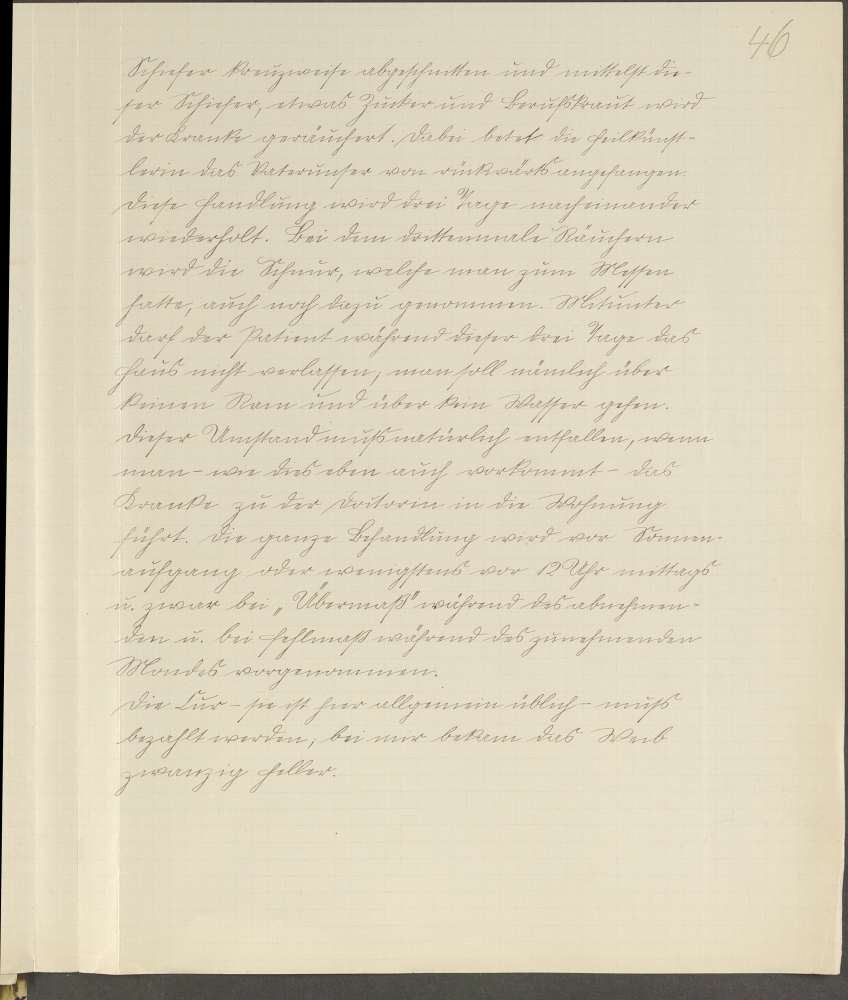 46
Schiefer kreuzweise abgeschnitten und mittelst die-
ser Schiefer, etwas Zucker und Berufskraut wird
der Kranke geräuchert. Dabei betet die Heilkünst-
lerin das Vaterunser von rückwärts angefangen.
Diese Handlung wird drei Tage nacheinander
wiederholt. Bei dem drittenmale Räuchern
wird die Schnur, welche man zum Messen
hatte, auch noch dazu genommen. Mitunter
darf der Patient während dieser drei Tage das
Haus nicht verlassen, man soll nämlich über
keinen Rain und über kein Wasser gehen.
Dieser Umstand muß natürlich entfallen, wenn
man – wie dies eben auch vorkommt – das
Kranke zu der Doctorin in die Wohnung
führt. Die ganze Behandlung wird vor Sonnen-
aufgang oder wenigstens vor 12 Uhr mittags
u. zwar bei „Übermaß" während des abnehmen-
den u. bei Fehlmaß während des zunehmenden
Mondes vorgenommen.
Die Cur – sie ist hier allgemein üblich – muß
bezahlt werden; bei mir bekam das Weib
zwanzig Heller.